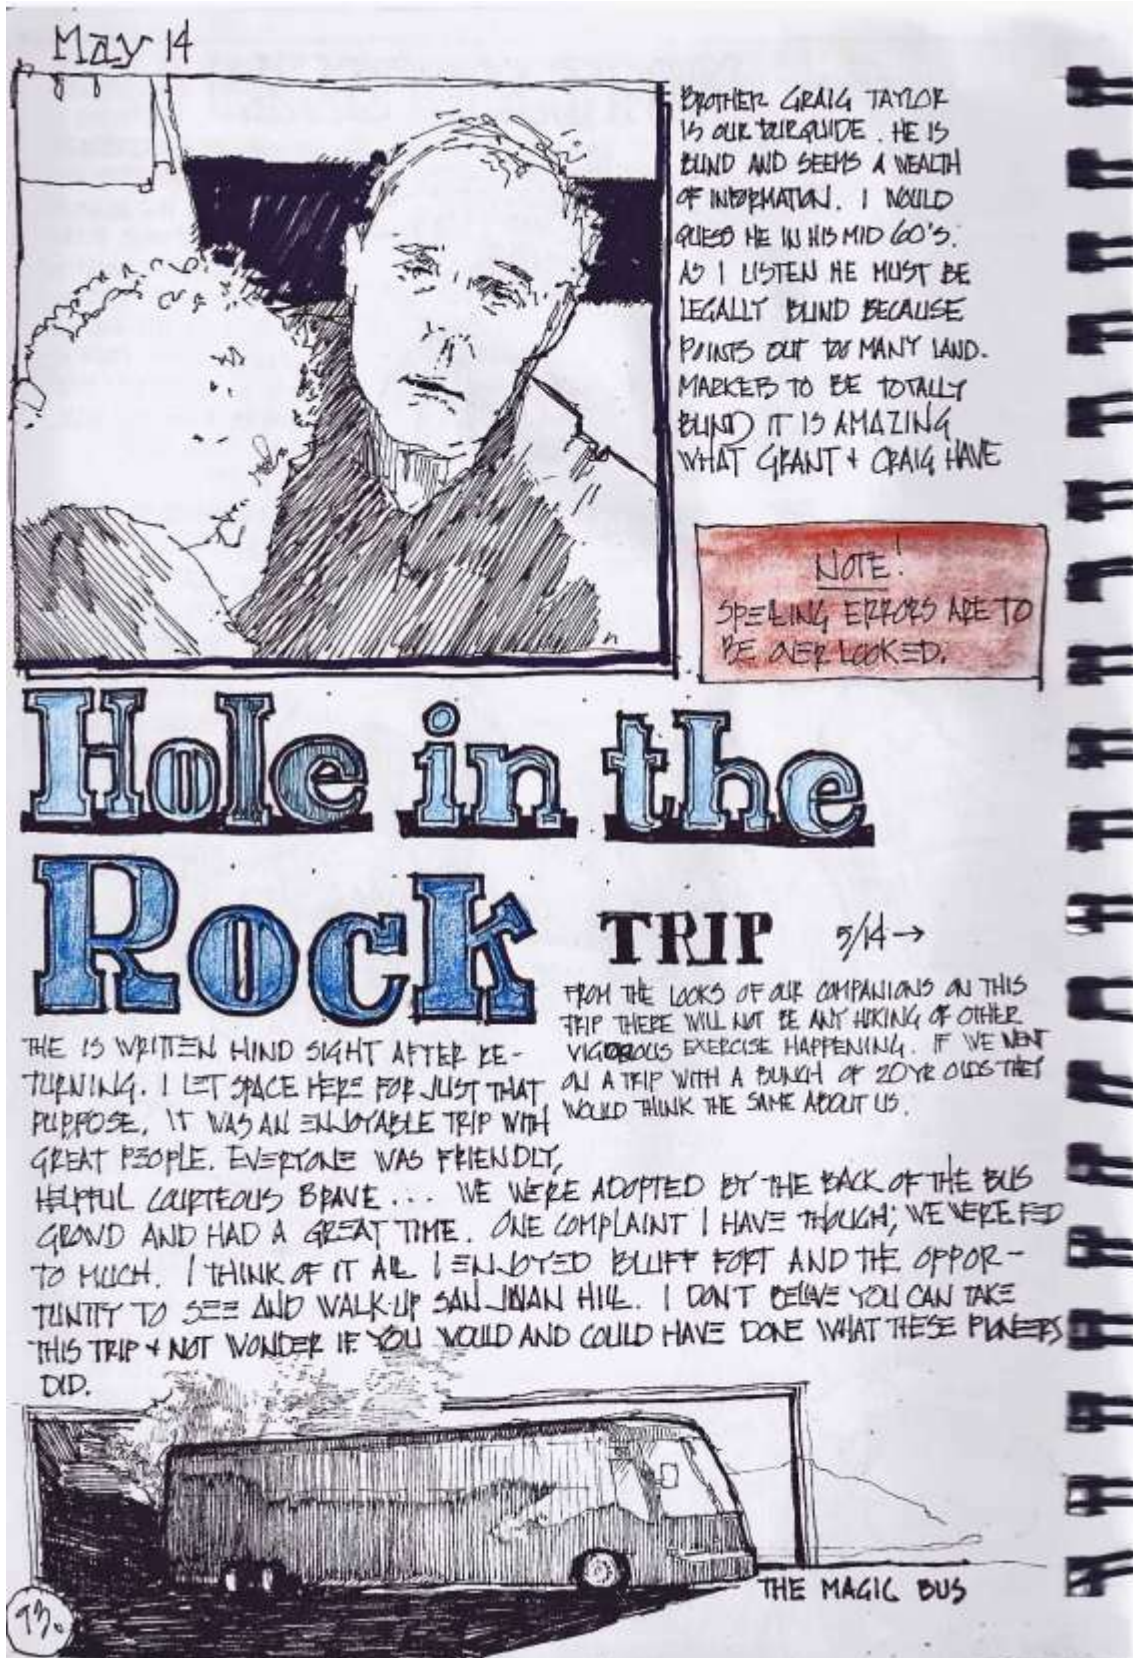 May 14
BROTHER GRAIG TAYLOR
IS OUR TOURGUIDE. HE IS
BLIND AND SEEMS A WEALTH
OF INFORMATION. I WOULD
GUESS HE IN HIS MID 60'S.
AS I LISTEN HE MUST BE
LEGALLY BLIND BECAUSE
POINTS OUT TO MANY LAND.
MARKERS TO BE TOTALLY
BLIND IT IS AMAZING
WHAT GRANT + CRAIG HAVE
NOTE!
SPELLING ERRORS ARE TO
BE OVER LOOKED.
Hole in the
Rock TRIP 5/14→
FROM THE LOOKS OF OUR COMPANIONS ON THIS
TRIP THERE WILL NOT BE ANY HIKING OF OTHER
VIGOROUS EXERCISE HAPPENING. IF WE WENT
ON A TRIP WITH A BUNCH OF 20 YR OLDS THEY
WOULD THINK THE SAME ABOUT US.
THE IS WRITTEN HIND SIGHT AFTER RE-
TURNING. I LET SPACE HERE FOR JUST THAT
PURPOSE. IT WAS AN ENJOYABLE TRIP WITH
GREAT PEOPLE. EVERYONE WAS FRIENDLY,
HELPFUL COURTEOUS BRAVE... WE WERE ADOPTED BY THE BACK OF THE BUS
CROWD AND HAD A GREAT TIME. ONE COMPLAINT I HAVE THOUGH; WE WERE FED
TO MUCH. I THINK OF IT ALL I ENJOYED BLUFF FORT AND THE OPPOR-
TUNITY TO SEE AND WALK UP SAN JUAN HILL. I DON'T BELIVE YOU CAN TAKE
THIS TRIP + NOT WONDER IF YOU WOULD AND COULD HAVE DONE WHAT THESE PIONEERS
DID.
THE MAGIC BUS
93.